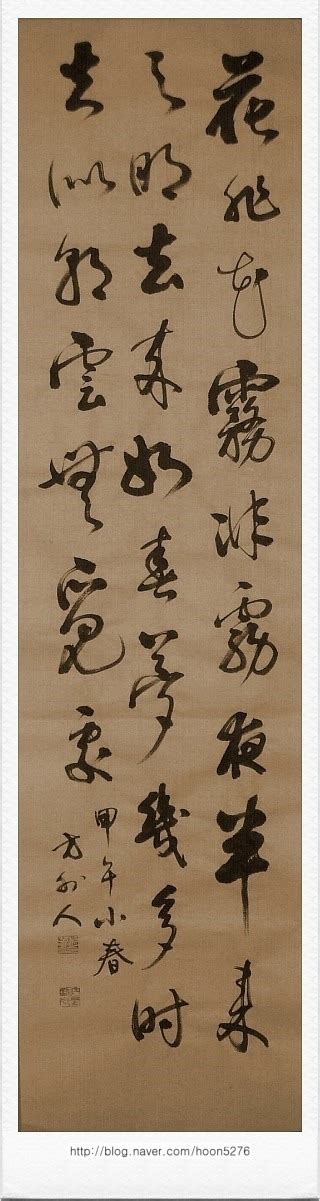 花非花霧非霧夜半来
天明去来如春夢幾多时
去似朝雲無覓處
甲午小春
方外人
http://blog.naver.com/hoon5276